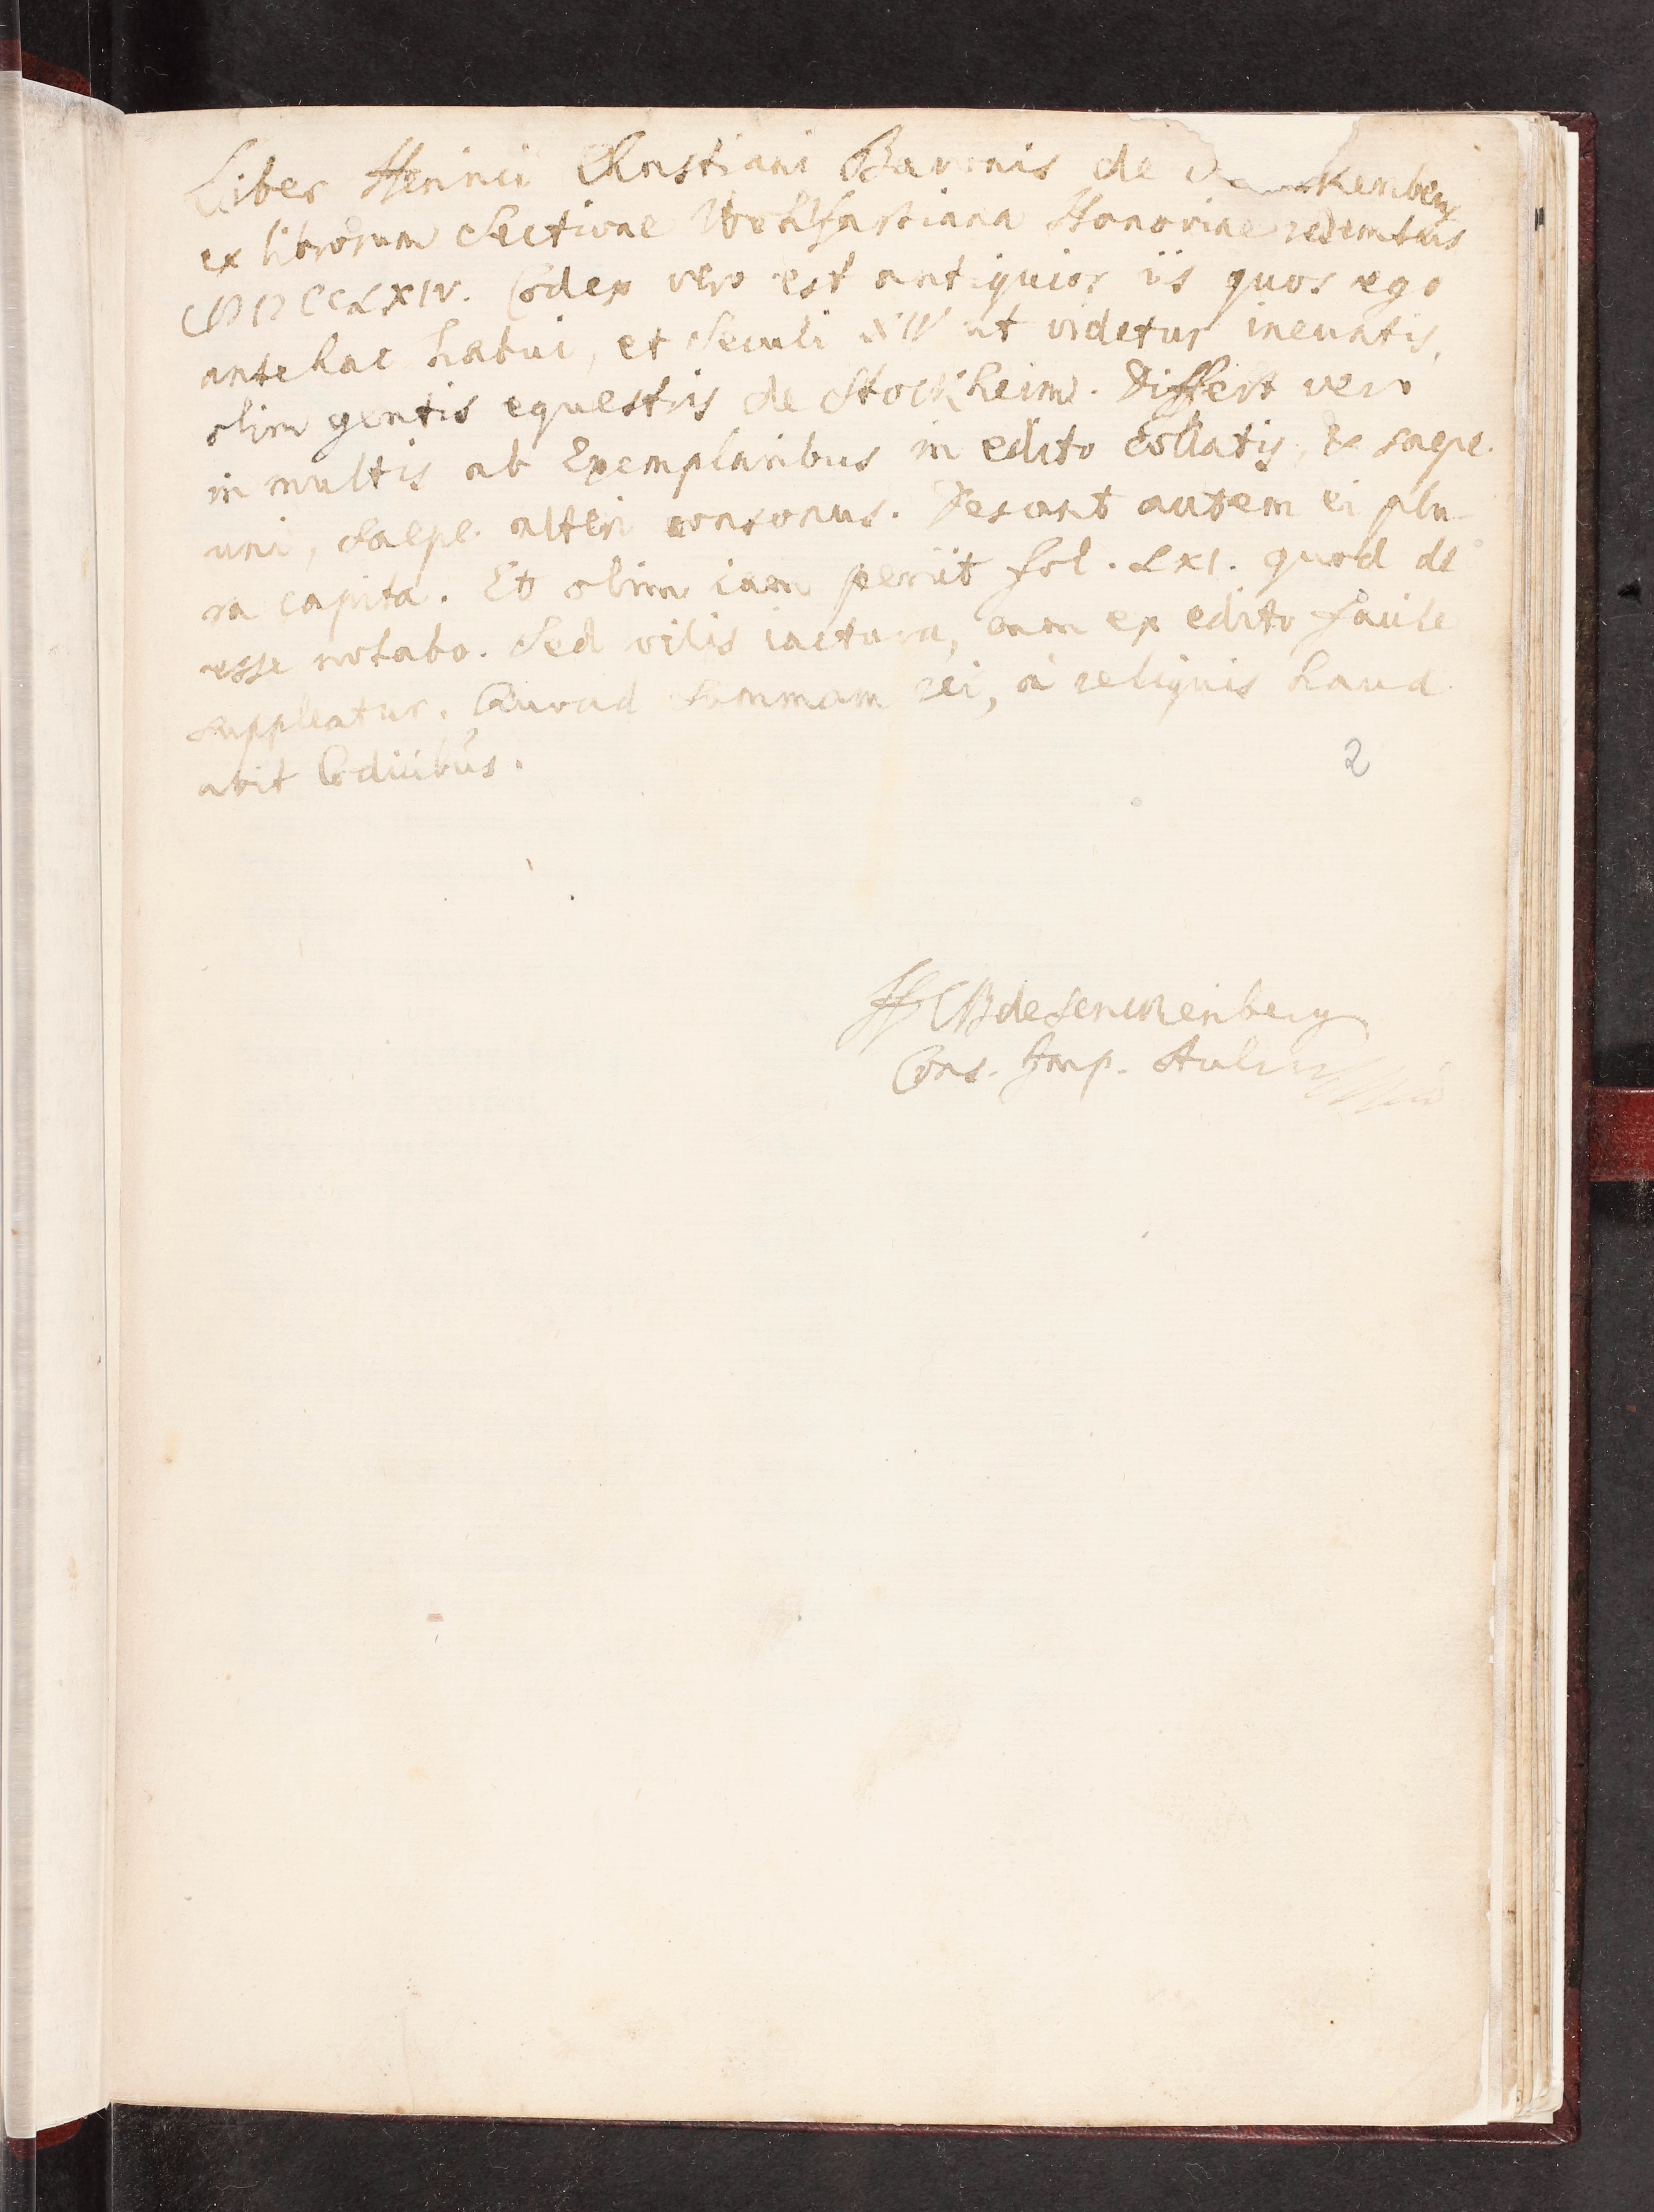 Liber Henrici Christiani Baronis de Senckenberg
ex librorum Sectione Wohlfartiana Hanoviae redemtus
MDCCLXIV. Codex vero est antiquior iis quos ego
antehac habui, et Seculi XIV ut videtur ineuntis,
olim gentis equestris de Stockheim. Differt vero
in multis ab Exemplaribus in edito collatis, & saepe
uni, saepe alteri consonus. Desunt autem ei plu-
ra capita. Et olim iam periit fol. LXI. quod de
esse notabo. Sed vilis iactura, cum ex edito facile
suppleatur. Quoad Summam rei, a reliquis haud
abit Codicibus.
2
HCB de Senckenberg
Cons. Imp. Aulicus